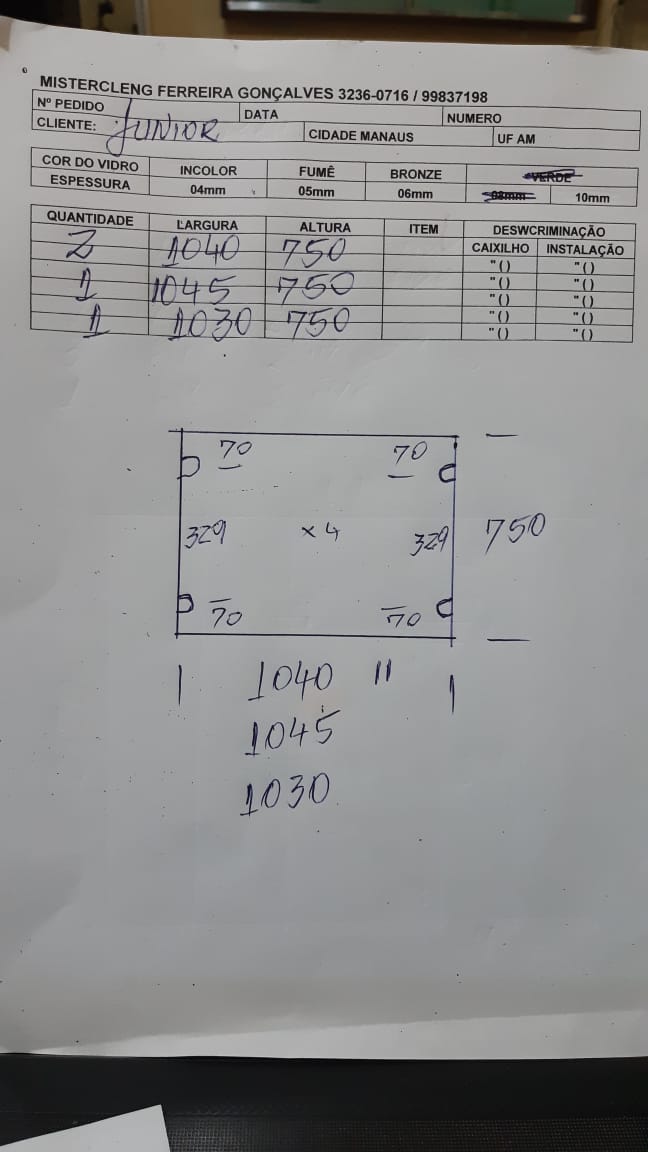 MISTERCLENG FERREIRA GONÇALVES 3236-0716 / 99837198
Nº PEDIDO DATA NUMERO
CLIENTE: JUNIOR CIDADE MANAUS UF AM
COR DO VIDRO INCOLOR FUMÊ BRONZE VERDE
ESPESSURA 04mm 05mm 06mm 08mm 10mm
QUANTIDADE LARGURA ALTURA ITEM DESWCRIMINAÇÃO
CAIXILHO INSTALAÇÃO
2 1040 750 "() "()
1 1045 750 "() "()
"() "()
1 1030 750 "() "()
"() "()
70 70
329 x 4 329 750
70 70
1040 "
1045
1030